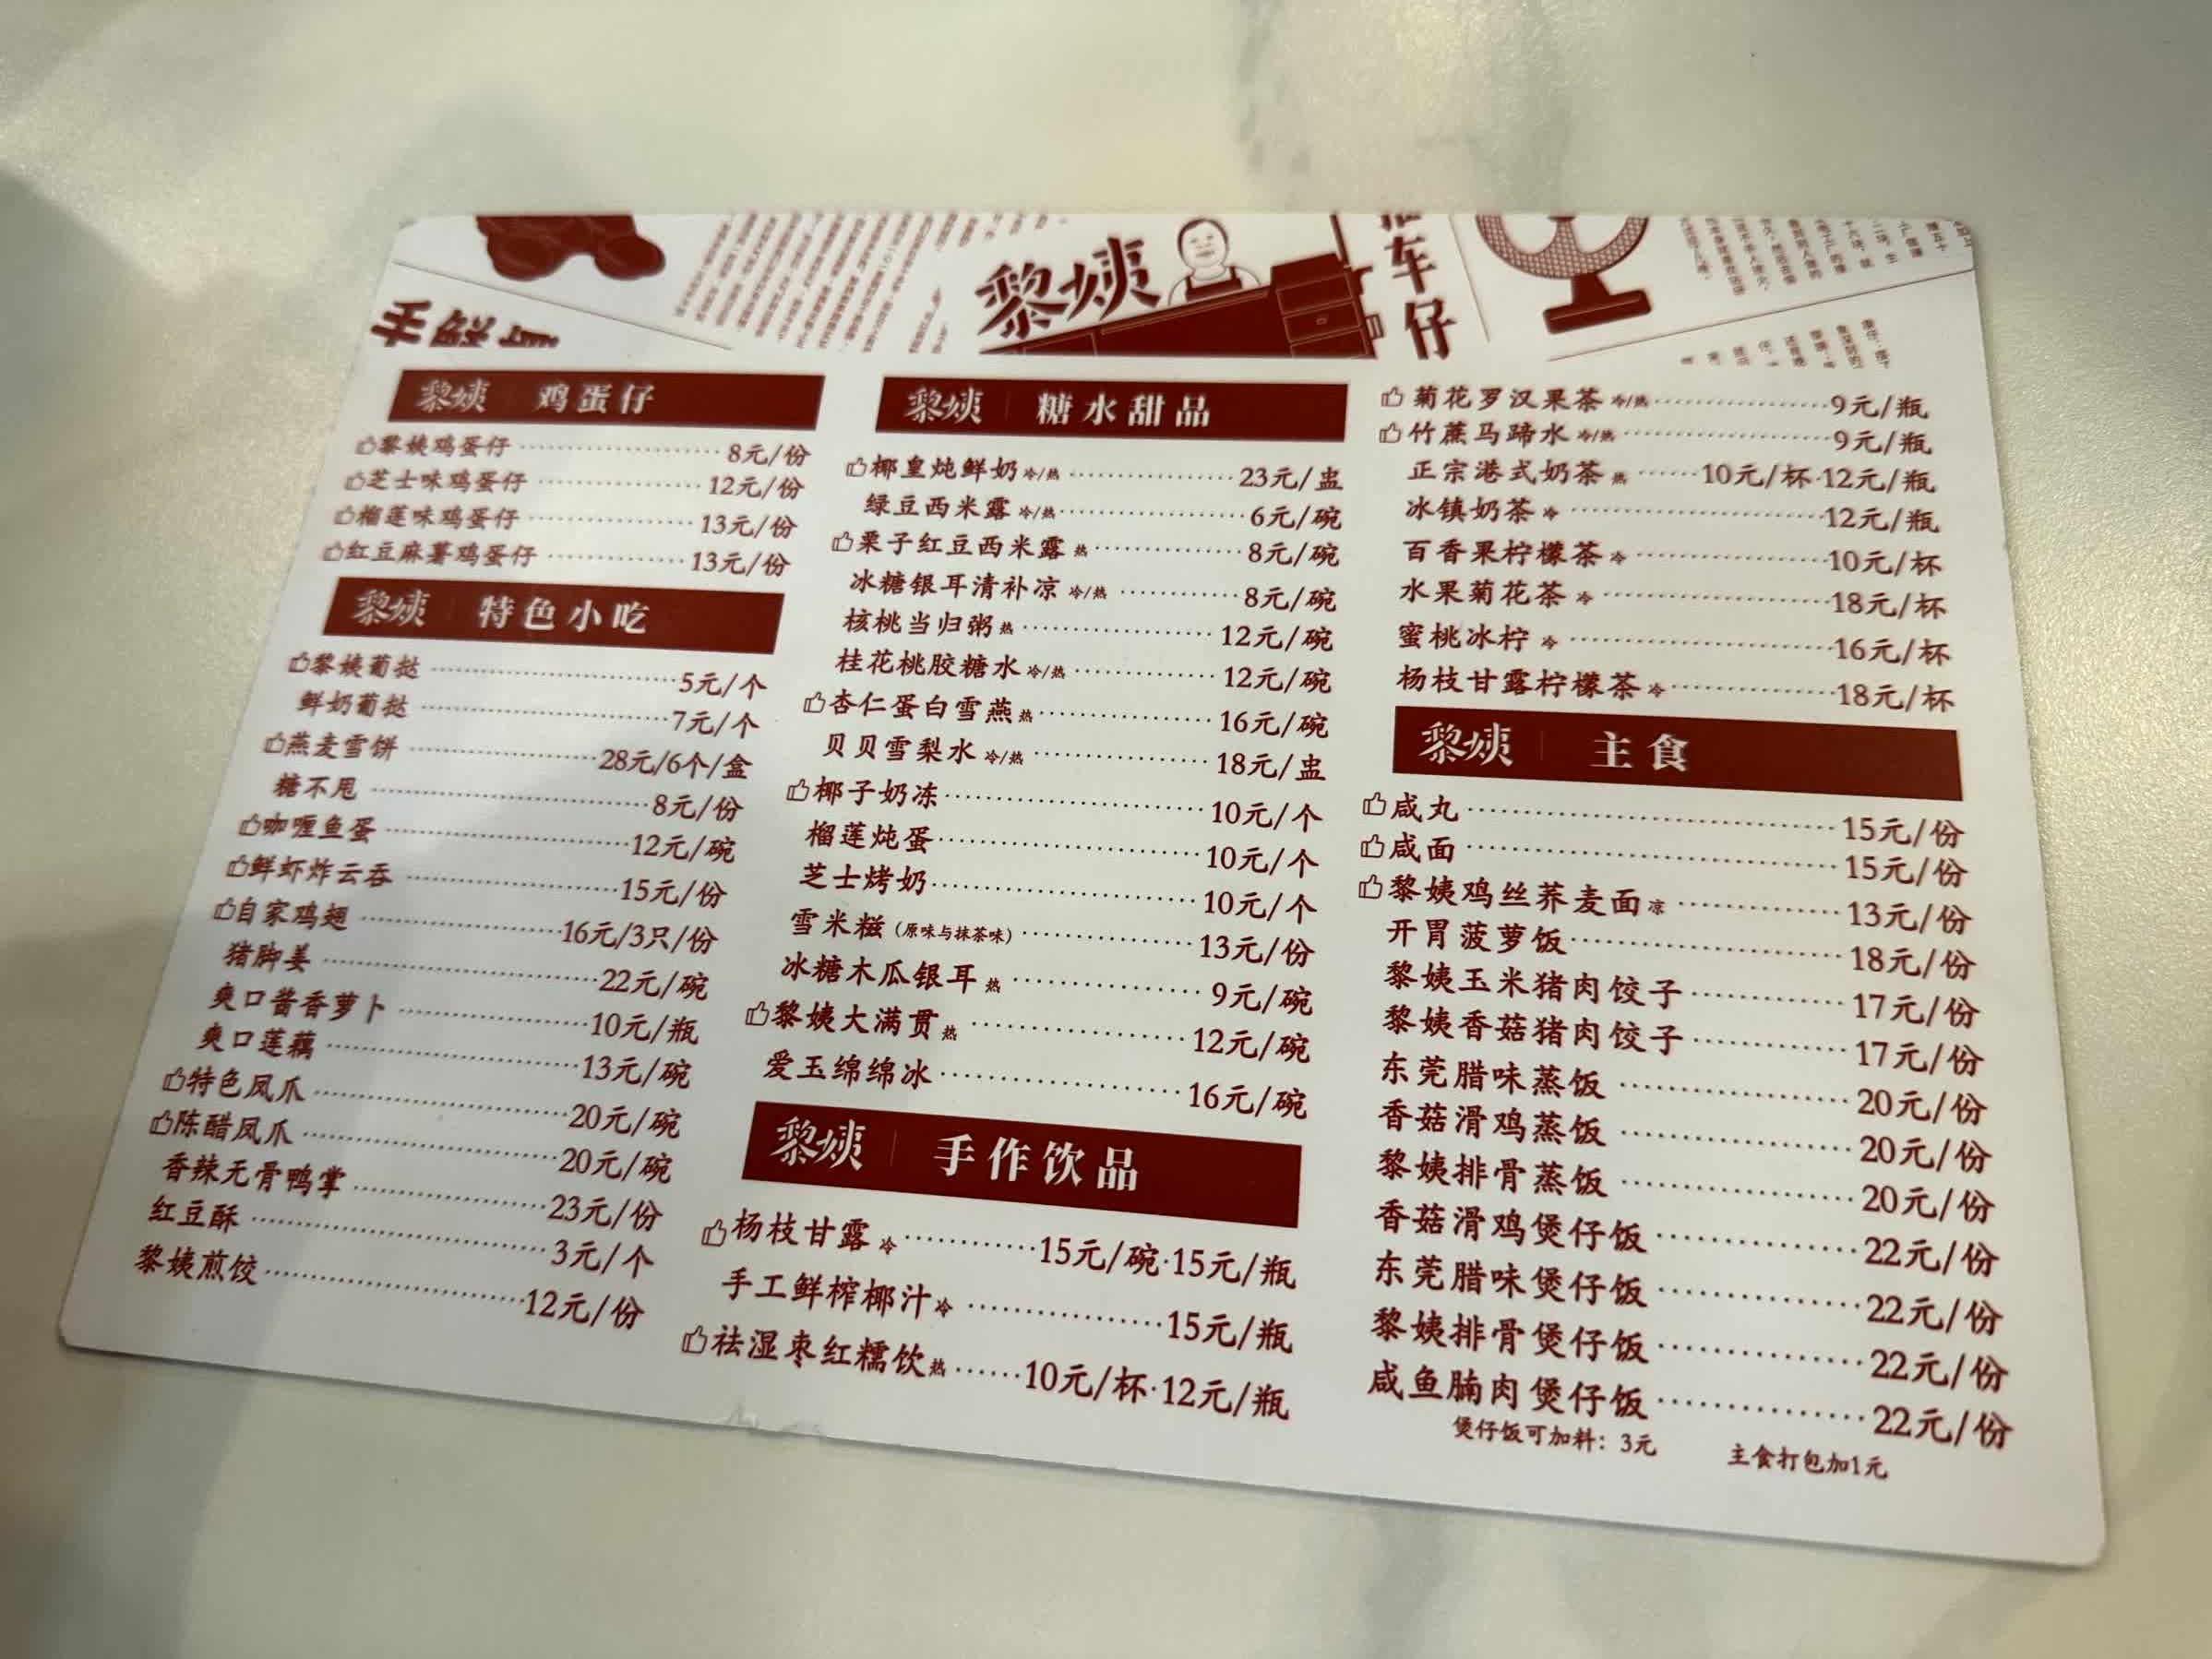 黎姨
车仔
黎姨 鸡蛋仔
黎姨鸡蛋仔 8元/份
芝士味鸡蛋仔 12元/份
榴莲味鸡蛋仔 13元/份
红豆麻薯鸡蛋仔 13元/份
黎姨 特色小吃
黎姨葡挞 5元/个
鲜奶葡挞 7元/个
燕麦雪饼 28元/6个/盒
糖不甩 8元/份
咖喱鱼蛋 12元/碗
鲜虾炸云吞 15元/份
自家鸡翅 16元/3只/份
猪脚姜 22元/碗
爽口酱香萝卜 10元/瓶
爽口莲藕 13元/碗
特色凤爪 20元/碗
陈醋凤爪 20元/碗
香辣无骨鸭掌 23元/份
红豆酥 3元/个
黎姨煎饺 12元/份
黎姨 糖水甜品
椰皇炖鲜奶 冷/热 23元/盅
绿豆西米露 冷/热 6元/碗
栗子红豆西米露 热 8元/碗
冰糖银耳清补凉 冷/热 8元/碗
核桃当归粥 热 12元/碗
桂花桃胶糖水 冷/热 12元/碗
杏仁蛋白雪燕 热 16元/碗
贝贝雪梨水 冷/热 18元/盅
椰子奶冻 10元/个
榴莲炖蛋 10元/个
芝士烤奶 10元/个
雪米糍 (原味与抹茶味) 13元/份
冰糖木瓜银耳 热 9元/碗
黎姨大满贯 热 12元/碗
爱玉绵绵冰 16元/碗
黎姨 手作饮品
杨枝甘露 冷 15元/碗·15元/瓶
手工鲜榨椰汁 冷 15元/瓶
祛湿枣红糯饮 热 10元/杯·12元/瓶
菊花罗汉果茶 冷/热 9元/瓶
竹蔗马蹄水 冷/热 9元/瓶
正宗港式奶茶 热 10元/杯·12元/瓶
冰镇奶茶 冷 12元/瓶
百香果柠檬茶 冷 10元/杯
水果菊花茶 冷 18元/杯
蜜桃冰柠 冷 16元/杯
杨枝甘露柠檬茶 冷 18元/杯
黎姨 主食
咸丸 15元/份
咸面 15元/份
黎姨鸡丝荞麦面 凉 13元/份
开胃菠萝饭 18元/份
黎姨玉米猪肉饺子 17元/份
黎姨香菇猪肉饺子 17元/份
东莞腊味蒸饭 20元/份
香菇滑鸡蒸饭 20元/份
黎姨排骨蒸饭 20元/份
香菇滑鸡煲仔饭 22元/份
东莞腊味煲仔饭 22元/份
黎姨排骨煲仔饭 22元/份
咸鱼腩肉煲仔饭 22元/份
煲仔饭可加料：3元 主食打包加1元